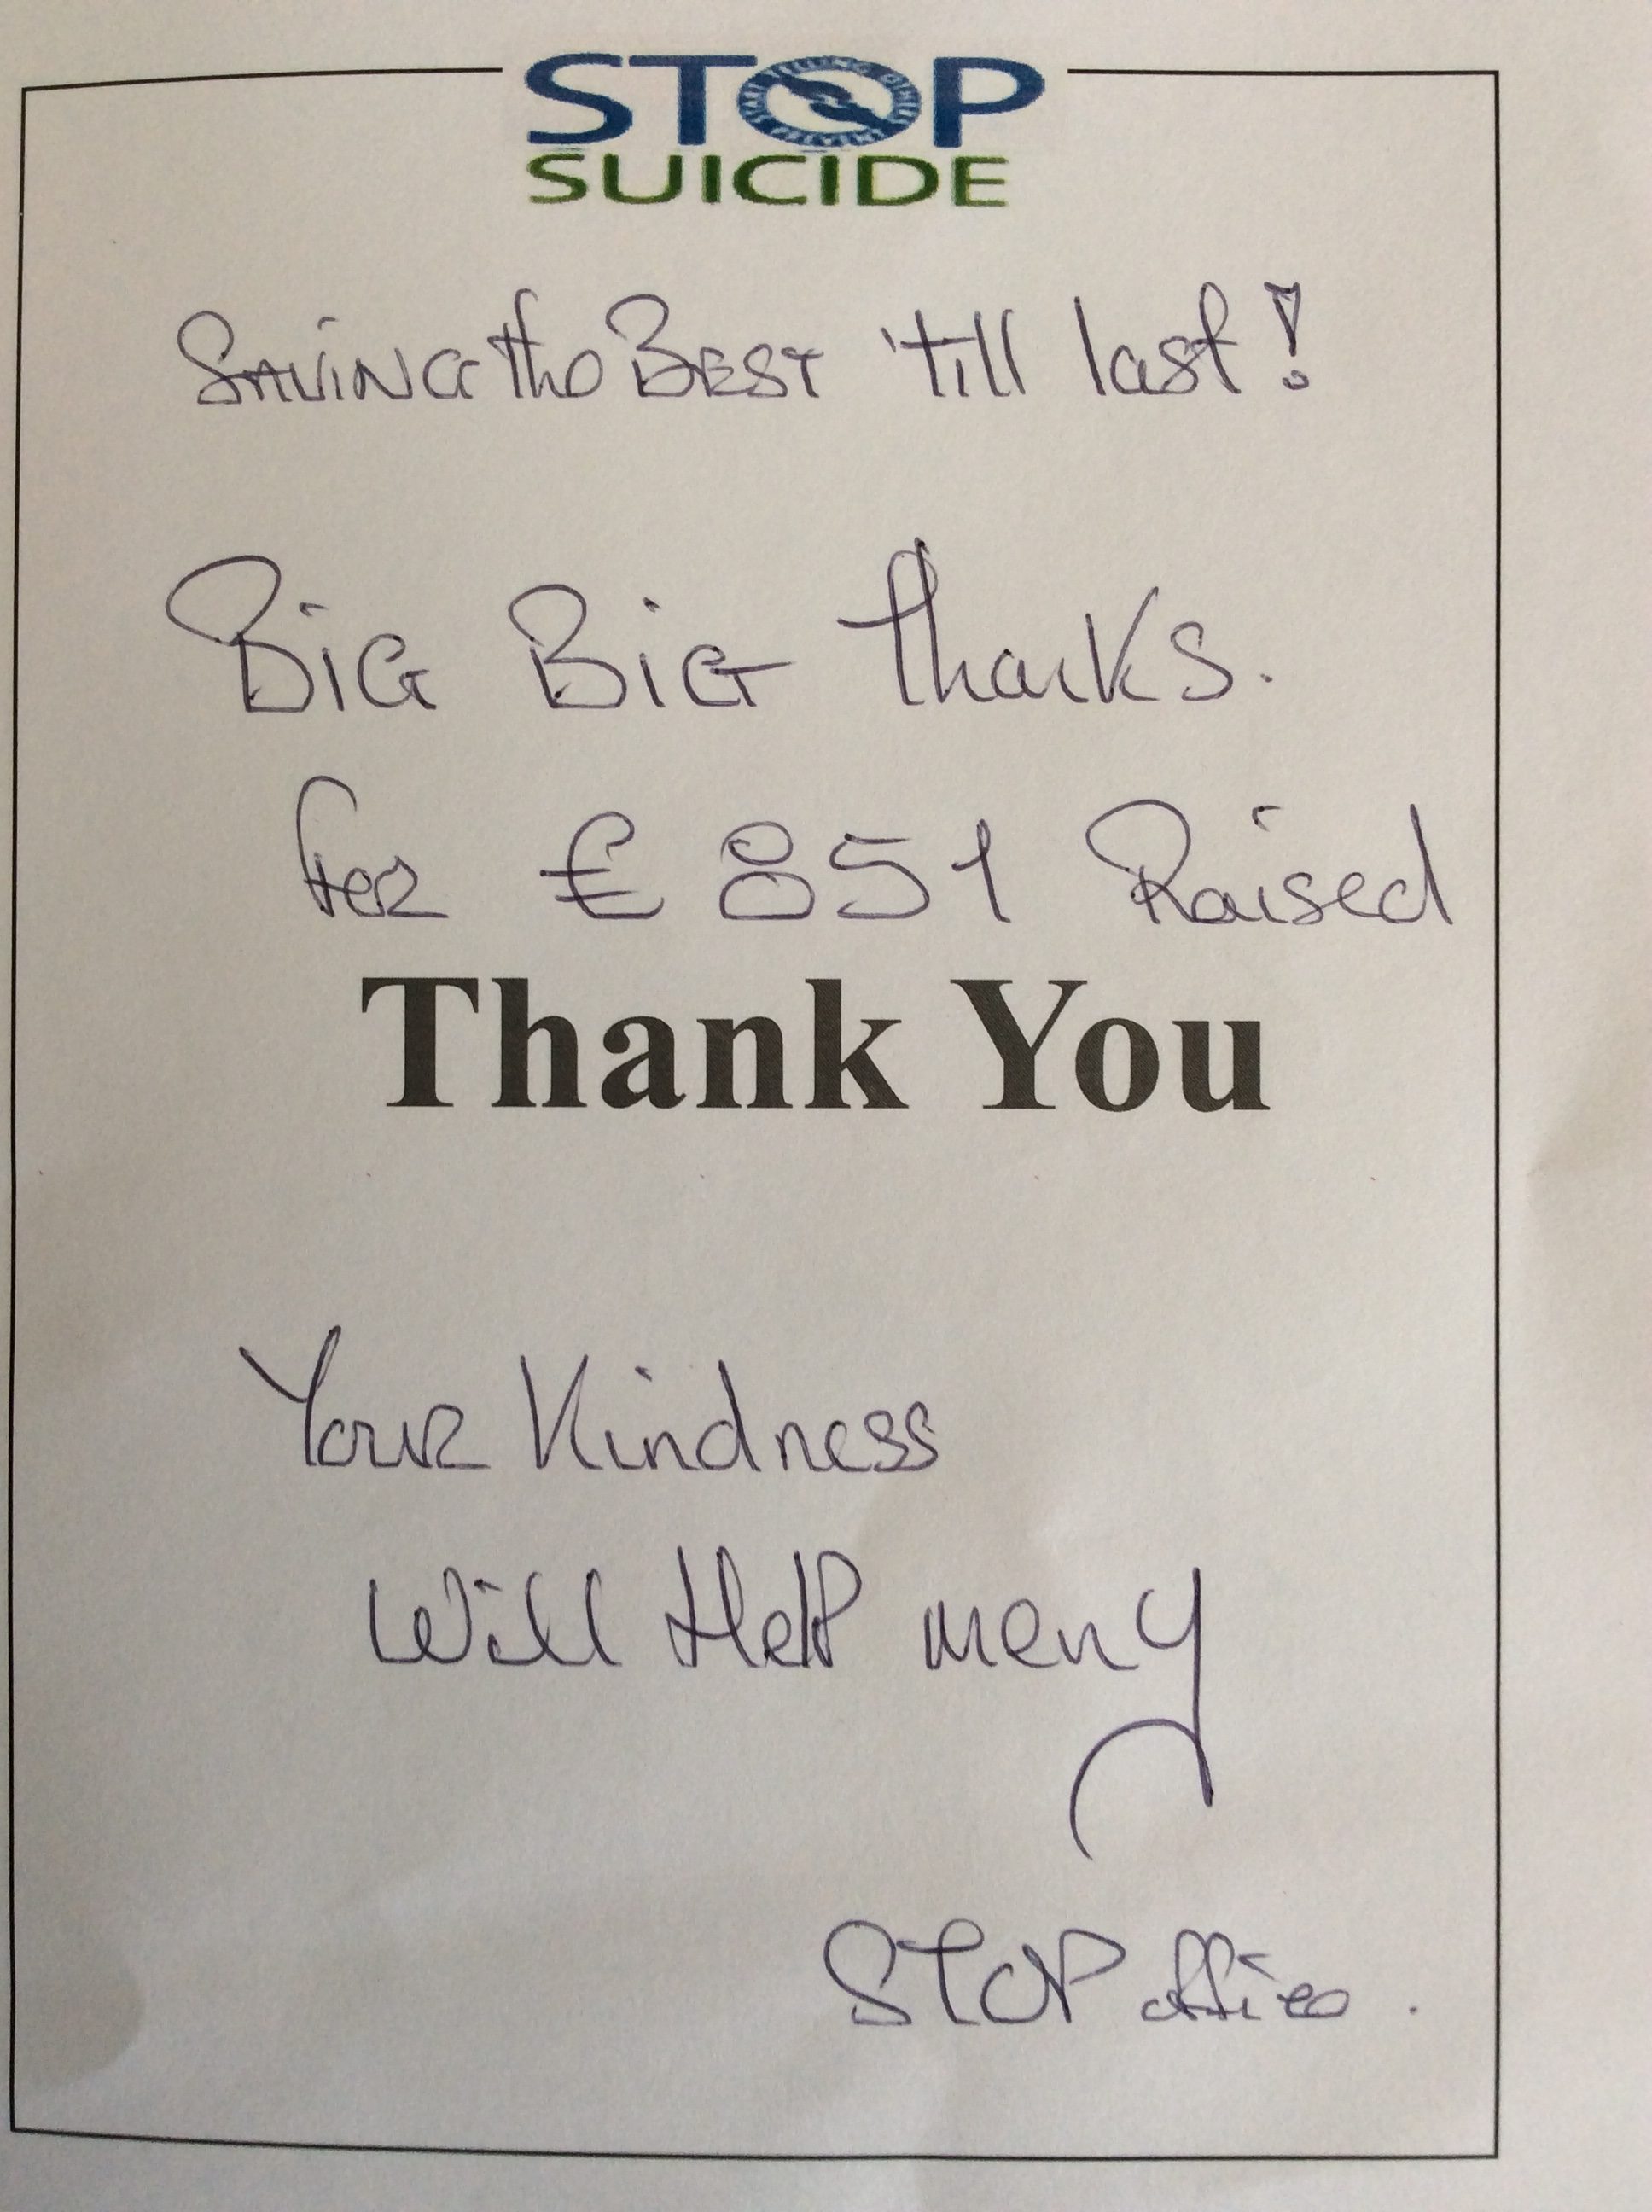 STOP
START TELLING OTHERS PREVENT
SUICIDE
SAVING the BEST 'till last!
BIG BIG thanks.
for € 851 Raised
Thank You
Your Kindness
Will Help meny
STOP office.